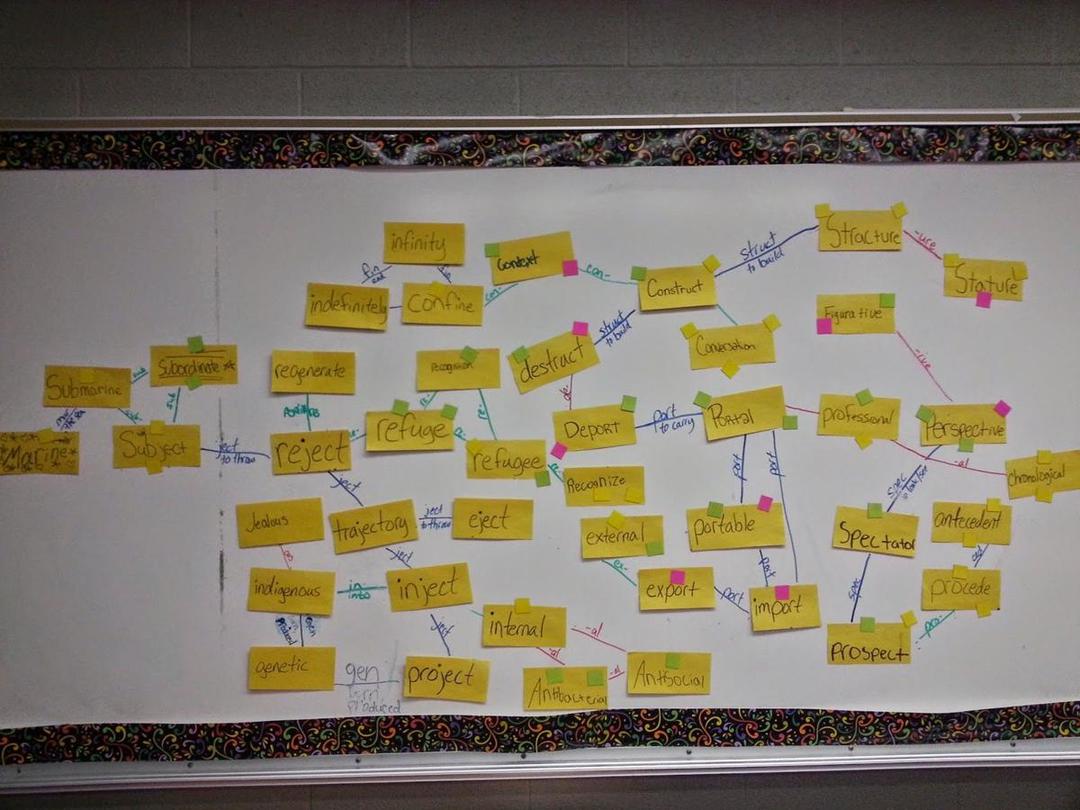 infinity
Context
con-
Structure
-ure
Stature
struct
to build
Construct
fin
end
indefinitely
confine
con-
Figurative
-ive
struct
to build
Conversation
destruct
de-
Submarine
sub
Subordinate
sub
sub
regenerate
recognition
re-
re-
Marine
Subject
ject
to throw
reject
refuge
re-
refugee
re-
Recognize
Deport
port
to carry
Portal
professional
-al
Perspective
Chronological
spec
ject
Jealous
trajectory
ject
to throw
eject
external
ex-
portable
port
port
Spectator
antecedent
ced
indigenous
in
into
ject
inject
export
port
port
import
spec
procede
pro-
internal
-al
-al
-al
ject
genetic
gen
born
produced
project
Antibacterial
Antisocial
Prospect